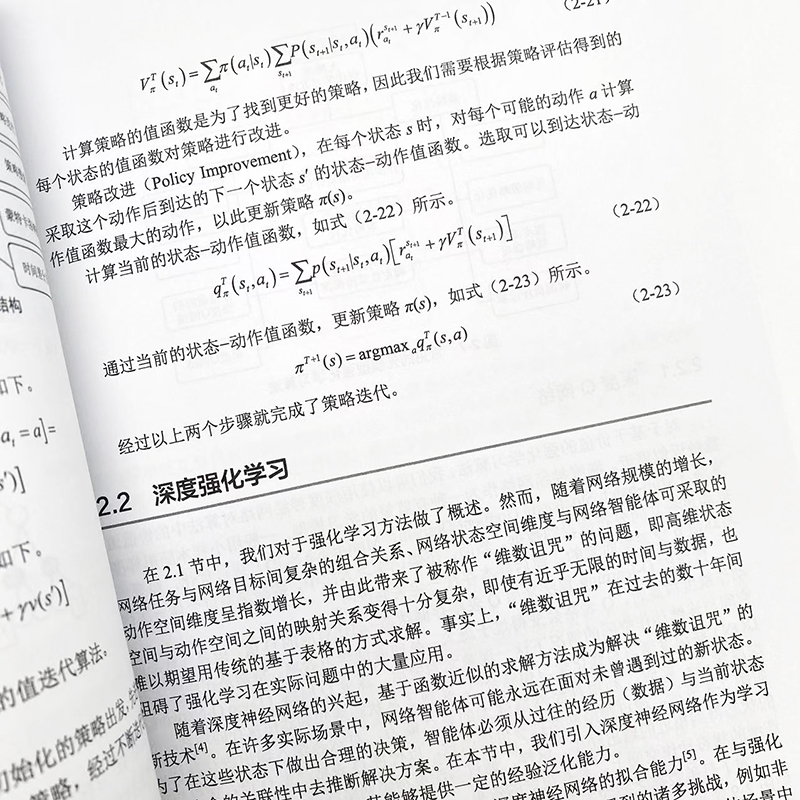 (2-21)
V_π^T(s_t)=∑_{a_t}π(a_t|s_t)∑_{s_{t+1}}P(s_{t+1}|s_t,a_t)(r_{a_t}^{s_{t+1}}+γV_π^{T-1}(s_{t+1}))
计算策略的值函数是为了找到更好的策略,因此我们需要根据策略评估得到的
每个状态的值函数对策略进行改进。
策略改进(Policy Improvement),在每个状态 s 时,对每个可能的动作 a 计算
采取这个动作后到达的下一个状态 s′ 的状态–动作值函数。选取可以到达状态–动
作值函数最大的动作,以此更新策略 π(s)。
计算当前的状态–动作值函数,如式(2-22)所示。
q_π^T(s_t,a_t)=∑_{s_{t+1}}p(s_{t+1}|s_t,a_t)[r_{a_t}^{s_{t+1}}+γV_π^T(s_{t+1})] (2-22)
通过当前的状态–动作值函数,更新策略 π(s),如式(2-23)所示。
π^{T+1}(s)=argmax_a q_π^T(s,a) (2-23)
经过以上两个步骤就完成了策略迭代。
2.2 深度强化学习
在 2.1 节中,我们对于强化学习方法做了概述。然而,随着网络规模的增长,
网络任务与网络目标间复杂的组合关系、网络状态空间维度与网络智能体可采取的
动作空间维度呈指数增长,并由此带来了被称作“维数诅咒”的问题,即高维状态
空间与动作空间之间的映射关系变得十分复杂,即使有近乎无限的时间与数据,也
难以期望用传统的基于表格的方式求解。事实上,“维数诅咒”在过去的数十年间
阻碍了强化学习在实际问题中的大量应用。
随着深度神经网络的兴起,基于函数近似的求解方法成为解决“维数诅咒”的
新技术[4]。在许多实际场景中,网络智能体可能永远在面对未曾遇到过的新状态。
为了在这些状态下做出合理的决策,智能体必须从过往的经历(数据)与当前状态
的关联性中去推断解决方案。在本节中,我们引入深度神经网络作为学习
能够提供一定的经验泛化能力。
深度神经网络的拟合能力[5]。在与强化
到的诸多挑战,例如非
场景中
结构
如下。
a_t=a]=
s′)]
如下。
+γv(s′)]
的值迭代算法。
初始化的策略出发,
策略,经过不断